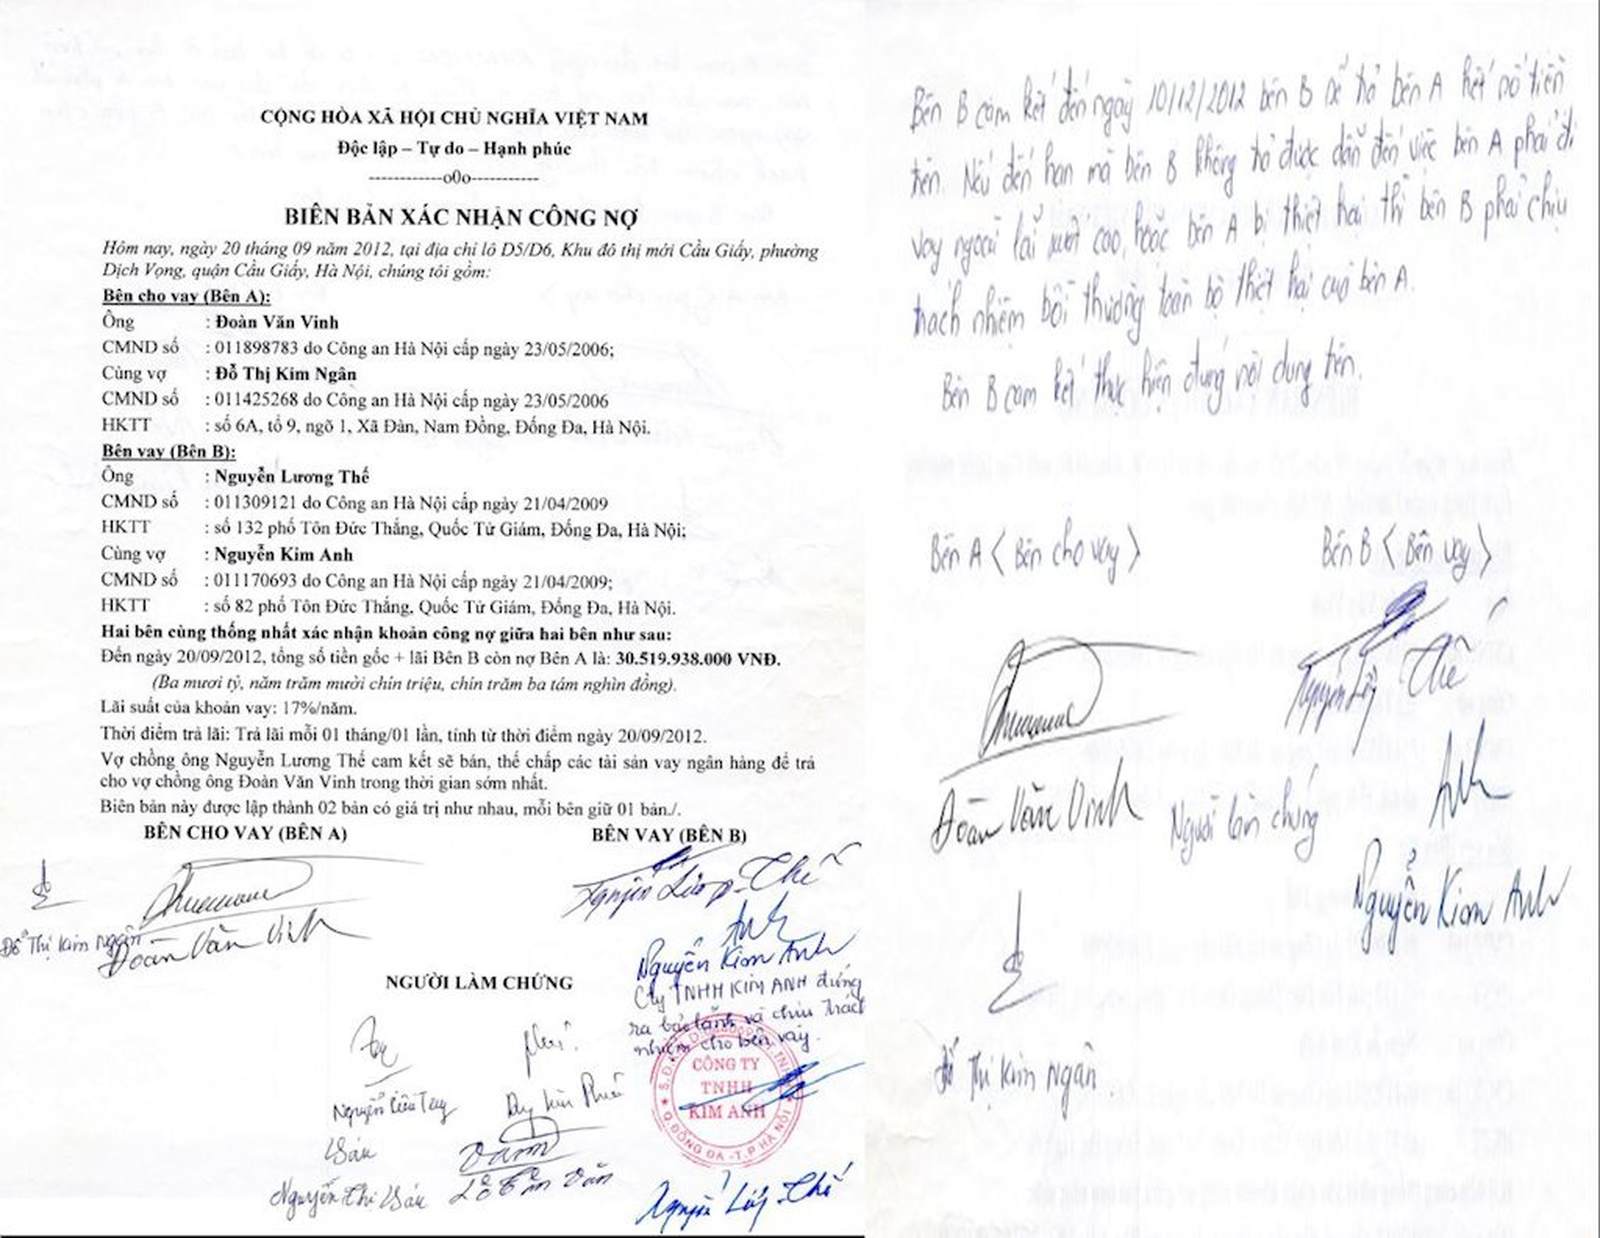 CỘNG HÒA XÃ HỘI CHỦ NGHĨA VIỆT NAM
Độc lập – Tự do – Hạnh phúc
------------o0o------------
BIÊN BẢN XÁC NHẬN CÔNG NỢ
Hôm nay, ngày 20 tháng 09 năm 2012, tại địa chỉ lô D5/D6, Khu đô thị mới Cầu Giấy, phường
Dịch Vọng, quận Cầu Giấy, Hà Nội, chúng tôi gồm:
Bên cho vay (Bên A):
Ông : Đoàn Văn Vinh
CMND số : 011898783 do Công an Hà Nội cấp ngày 23/05/2006;
Cùng vợ : Đỗ Thị Kim Ngân
CMND số : 011425268 do Công an Hà Nội cấp ngày 23/05/2006
HKTT : số 6A, tổ 9, ngõ 1, Xã Đàn, Nam Đồng, Đống Đa, Hà Nội.
Bên vay (Bên B):
Ông : Nguyễn Lương Thế
CMND số : 011309121 do Công an Hà Nội cấp ngày 21/04/2009
HKTT : số 132 phố Tôn Đức Thắng, Quốc Tử Giám, Đống Đa, Hà Nội;
Cùng vợ : Nguyễn Kim Anh
CMND số : 011170693 do Công an Hà Nội cấp ngày 21/04/2009;
HKTT : số 82 phố Tôn Đức Thắng, Quốc Tử Giám, Đống Đa, Hà Nội.
Hai bên cùng thống nhất xác nhận khoản công nợ giữa hai bên như sau:
Đến ngày 20/09/2012, tổng số tiền gốc + lãi Bên B còn nợ Bên A là: 30.519.938.000 VNĐ.
(Ba mươi tỷ, năm trăm mười chín triệu, chín trăm ba tám nghìn đồng).
Lãi suất của khoản vay: 17%/năm.
Thời điểm trả lãi: Trả lãi mỗi 01 tháng/01 lần, tính từ thời điểm ngày 20/09/2012.
Vợ chồng ông Nguyễn Lương Thế cam kết sẽ bán, thế chấp các tài sản vay ngân hàng để trả
cho vợ chồng ông Đoàn Văn Vinh trong thời gian sớm nhất.
Biên bản này được lập thành 02 bản có giá trị như nhau, mỗi bên giữ 01 bản./.
BÊN CHO VAY (BÊN A) BÊN VAY (BÊN B)
Nguyễn Lương Thế
Anh
Đỗ Thị Kim Ngân Đoàn Văn Vinh
Nguyễn Kim Anh
NGƯỜI LÀM CHỨNG
Cty TNHH KIM ANH đứng
ra bảo lãnh và chịu trách
nhiệm cho bên vay.
CÔNG TY
TNHH
KIM ANH
Q.ĐỐNG ĐA - T.P HÀ NỘI
Nguyễn Thị
Nguyễn Thế
Bên B cam kết đến ngày 10/12/2012 bên B sẽ trả bên A hết số tiền
trên. Nếu đến hạn mà bên B không trả được dẫn đến việc bên A phải đi
vay ngoài lãi suất cao, hoặc bên A bị thiệt hại thì bên B phải chịu
trách nhiệm bồi thường toàn bộ thiệt hại của bên A.
Bên B cam kết thực hiện đúng nội dung trên.
Bên A <Bên cho vay> Bên B <Bên vay>
Nguyễn Thế
Anh
Đoàn Văn Vinh Người làm chứng
Nguyễn Kim Anh
Đỗ Thị Kim Ngân